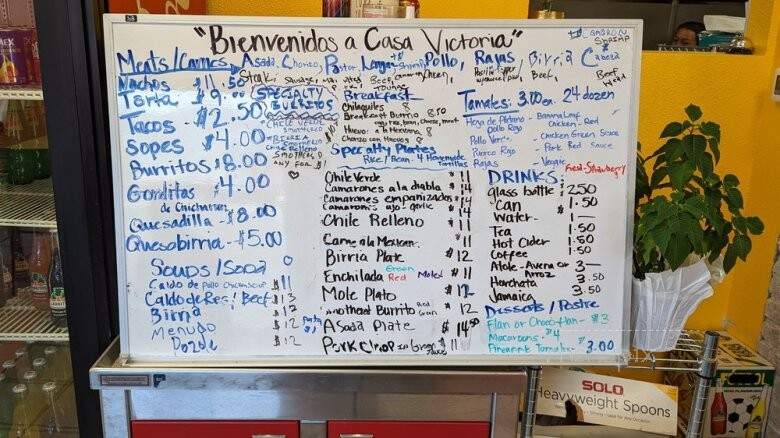 "Bienvenidos a Casa Victoria"
Shrimp
Meats/Carnes Asada, Chorizo, Pastor, Lengua, Pollo, Rajas, Birria, Cabeza
Steak, Sausage, Beef, Beef, Beef head
Nachos $11.50
Torta $9.00
Tacos $2.50
Sopes $4.00
Burritos $8.00
Gorditas $4.00
de Chicharron
Quesadilla - $8.00
Quesabirria - $5.00
Specialty Burritos
Chile Relleno
Smothered
any for $
Soups/Sopa
Caldo de Pollo Chicken Soup $11
Caldo de Res / Beef $13
Birria $12
Menudo $12
Pozole $12
Breakfast
Chilaquiles 8
Breakfast Burrito 8.50
egg, rice, bean, cheese, meat
Huevo a la Mexicana 8
Huevo con Chorizo 8
Specialty Plates
Rice/Bean 4 Homemade Tortillas
Chile Verde $11
Camarones a la diabla $14
Camarones empanizados $14
Camarones ajo-garlic $14
Chile Relleno $11
Carne a la Mexican $12
Birria Plate $12
Enchilada Green Red Mole $11
Mole Plato $12
Burrito Red Green $12
Asada Plate $14.50
Pork Chop in Green Sauce $11
Tamales: 3.00ea. 24 dozen
Hoja de Platano - Banana Leaf
Pollo Rojo - Chicken - Red
Pollo Verde - Chicken Green Sauce
Puerco Rojo - Pork Red Sauce
Rajas - Veggie
Fresa - Strawberry
DRINKS:
Glass bottle $2.50
Can $1.50
Water
Tea 1.50
Hot Cider 1.50
Coffee 1.50
Atole - Avena or Arroz 3
Horchata 3.50
Jamaica 3.50
Desserts/Postre
Flan or Choco-flan - $3
Macaroons - $4
Pineapple Tamales - $3.00
SOLO
Heavyweight Spoons